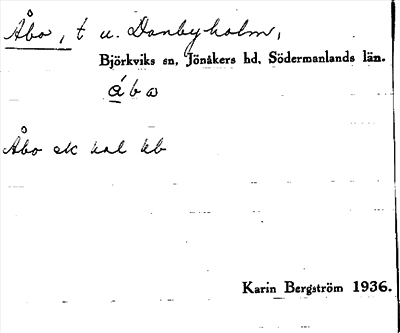 Åbo, t u. Danbyholm,
Björkviks sn, Jönåkers hd, Södermanlands län.
åbω
Åbo ek kal kb
Karin Bergström 1936.